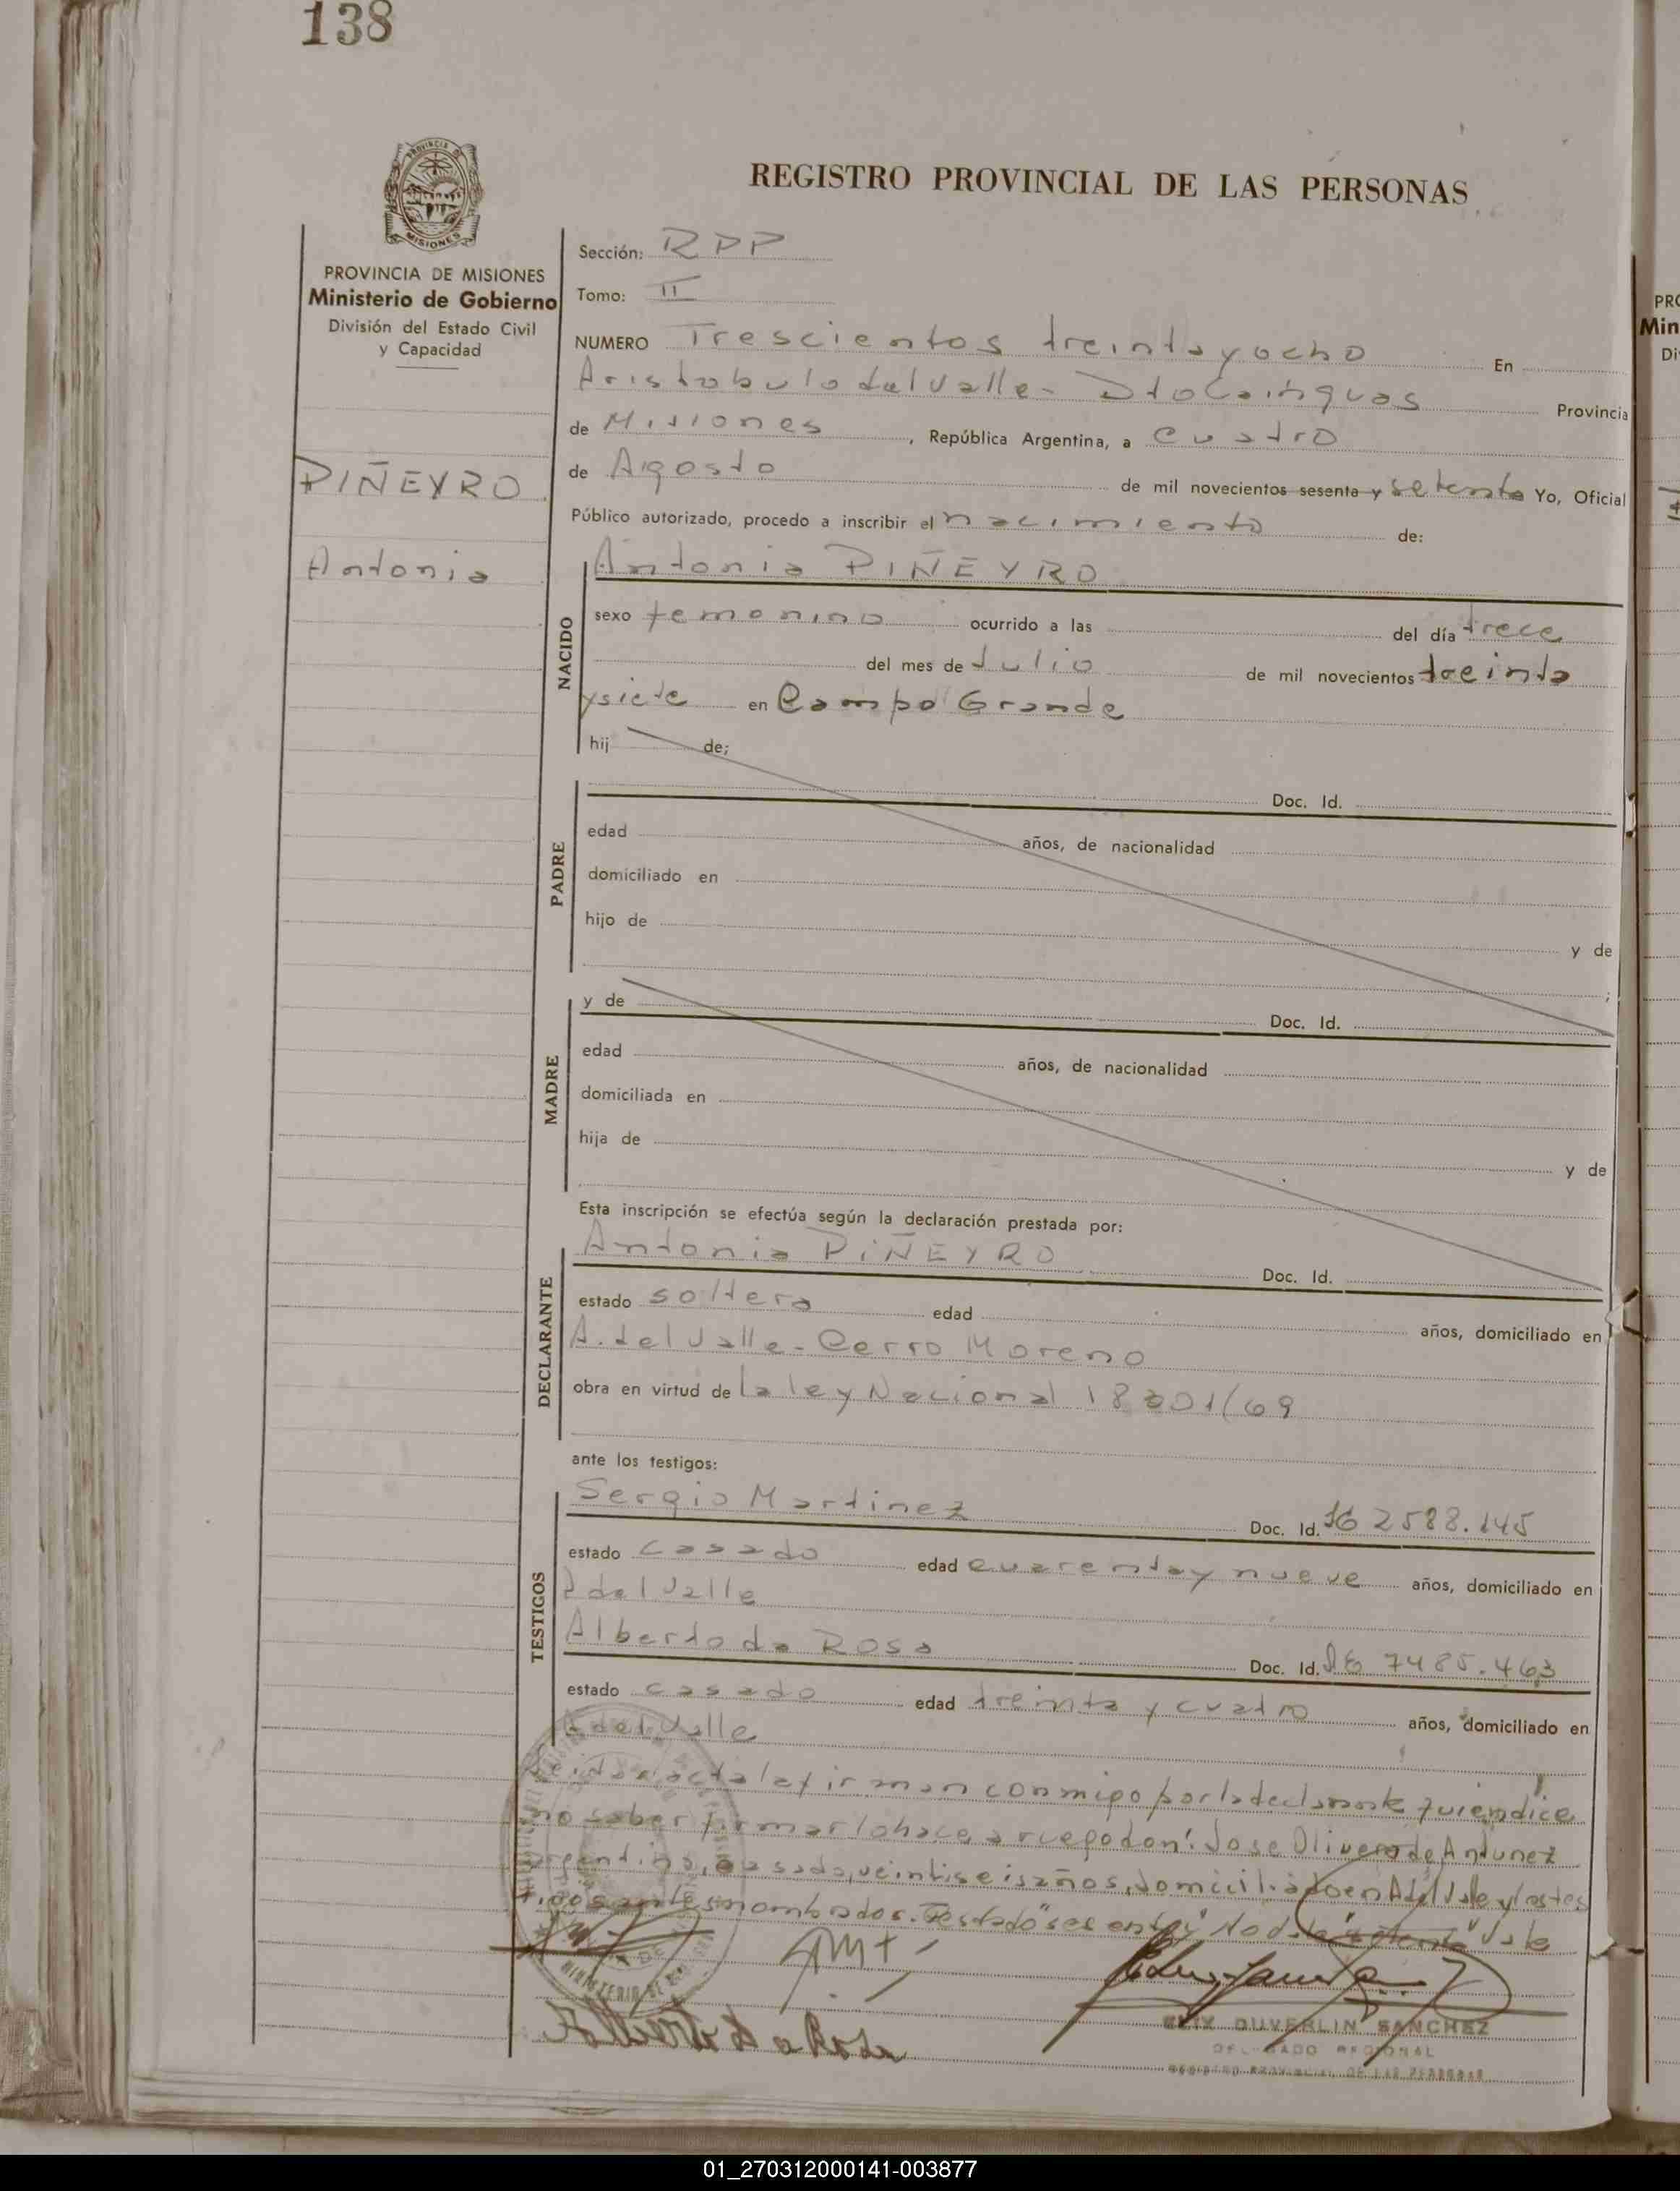 138
REGISTRO PROVINCIAL DE LAS PERSONAS
PROVINCIA DE MISIONES
Ministerio de Gobierno
División del Estado Civil
y Capacidad
PIÑEYRO
Antonia
Sección: RPP
Tomo: II
NUMERO Trescientos treinta y ocho En
Aristobulo del Valle - Dto Cainguas Provincia
de Misiones, República Argentina, a cuatro
de Agosto de mil novecientos sesenta y setenta Yo, Oficial
Público autorizado, procedo a inscribir el nacimiento de:
NACIDO
Antonia PIÑEYRO
sexo femenino ocurrido a las del día trece
del mes de Julio de mil novecientos treinta
y siete en Campo Grande
hij de;
PADRE
Doc. Id.
edad años, de nacionalidad
domiciliado en
hijo de y de
;
MADRE
y de Doc. Id.
edad años, de nacionalidad
domiciliada en
hija de y de
Esta inscripción se efectúa según la declaración prestada por:
DECLARANTE
Antonia PIÑEYRO Doc. Id.
estado soltera edad años, domiciliado en
A. del Valle - Cerro Moreno
obra en virtud de la ley Nacional 18 /69
ante los testigos:
TESTIGOS
Sergio Martinez Doc. Id. 2588.145
estado casado edad cuarenta y nueve años, domiciliado en
A del Valle
Alberto da Rosa Doc. Id. 7485.463
estado casado edad treinta y cuatro años, domiciliado en
A del Valle
Leida el acta la firman conmigo por la declarante quien dice
no saber firmar lo hace a ruego don: Jose Olivera de Antunez
argentino, casado, veintiseis años, domiciliado en A del Valle y los tes
tigos antes nombrados. Testado "sesenta y" No vale "setenta" Vale
Alberto da Rosa
FELIX DUVERLIN SANCHEZ
DELEGADO REGIONAL
REGISTRO PROVINCIAL DE LAS PERSONAS
01_270312000141-003877